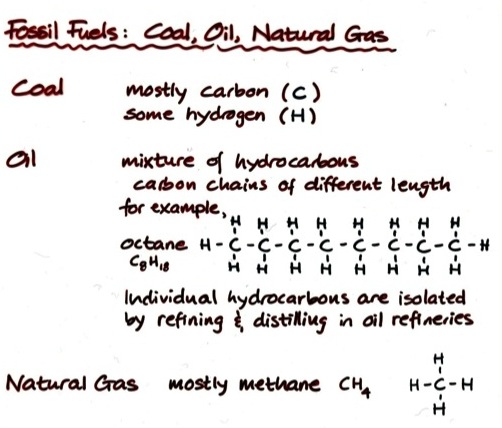 Fossil Fuels: Coal, Oil, Natural Gas
Coal mostly carbon (C)
some hydrogen (H)
Oil mixture of hydrocarbons
carbon chains of different length
for example,
H H H H H H H H
octane H-C-C-C-C-C-C-C-C-H
C₈H₁₈ H H H H H H H H
Individual hydrocarbons are isolated
by refining & distilling in oil refineries
H
Natural Gas mostly methane CH₄ H-C-H
H